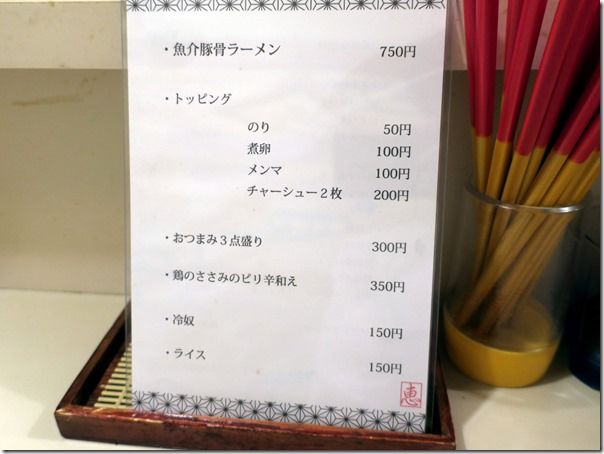 ・魚介豚骨ラーメン 750円
・トッピング
のり 50円
煮卵 100円
メンマ 100円
チャーシュー２枚 200円
・おつまみ３点盛り 300円
・鶏のささみのピリ辛和え 350円
・冷奴 150円
・ライス 150円
恵